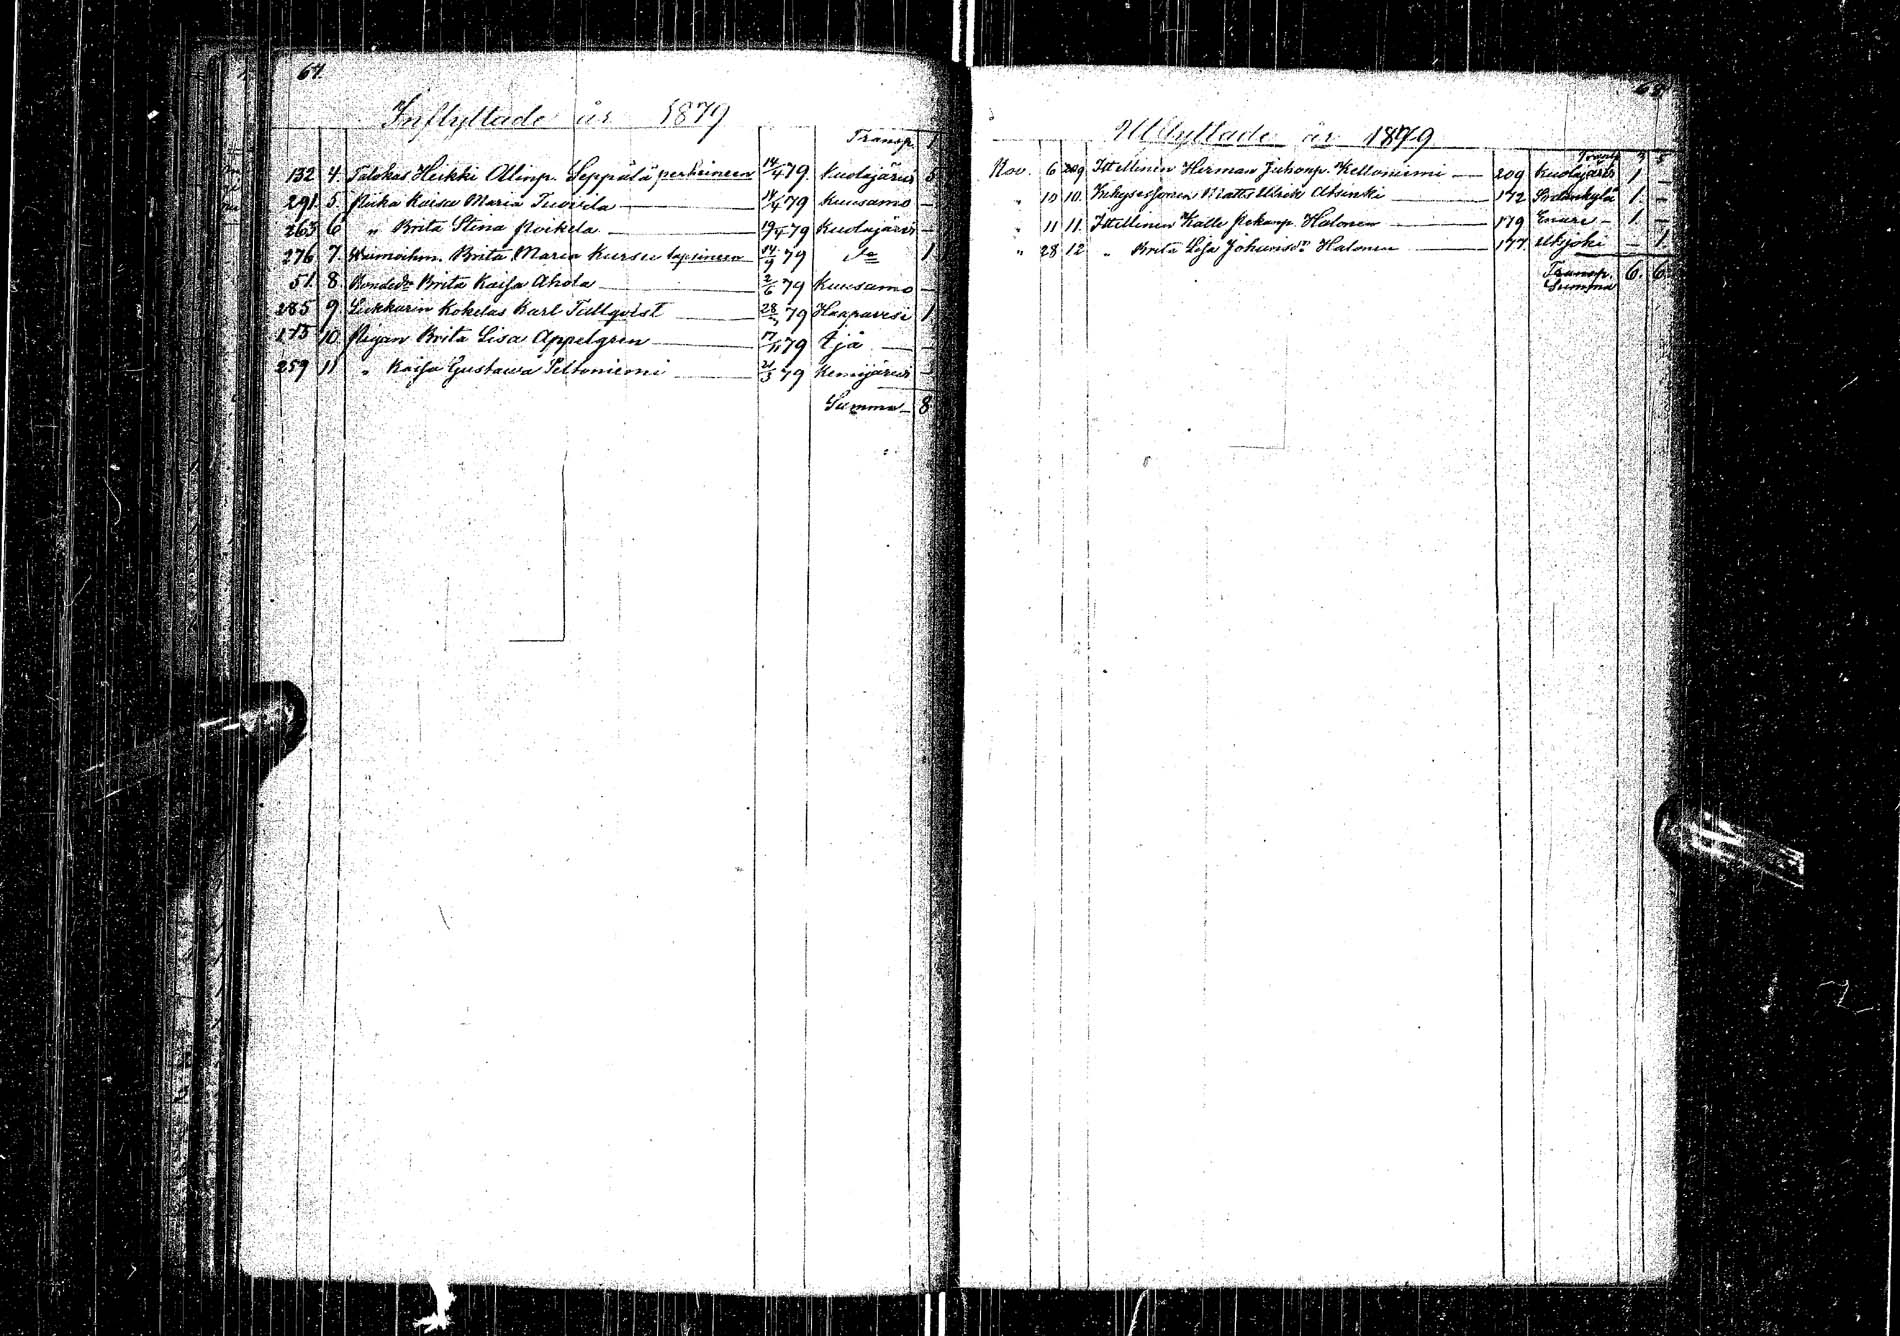 64.
Inflyttade år 1879
Transp. 1
132 4. Talokas Heikki Olinp. Seppälä perheineen 14/4 79. Kuolajärvi 5
291. 5. Piika Kaisa Maria Tuovila 14/4 79 Kuusamo -
263 6 „ Brita Stina Poikela 19/4 79 Kuolajärvi -
276 7. Brita Maria Kursu lapsineen 14/9 79 Do 1
51. 8. Bondedr Brita Kaisa Ahola 2/6 79 Kuusamo -
285 9 Lukkarin Kokelas Karl Tallqvist 28/ 79 Haapavesi 1
175 10. Pigan Brita Lisa Appelgren 79 Ijå -
259 11 „ Kaisa Gustava Peltoniemi 21/3 79 Kemijärvi -
Summa 8
65
Utflyttade år 1879
Transp. 3 5
Nov. 6 209 Itellinen Herman Juhonp. Kelloniemi 209 Kuolajärvi 1 -
„ 10 10. Matts Ulrik 172 Sodankylä 1. -
„ 11 11. Itellinen Kalle Pekanp. Halonen 179 Enare 1. -
„ 28 12 „ Brita Lisa Johansdr Halonen 177. Utsjoki - 1.
Transp. 6. 6
Summa